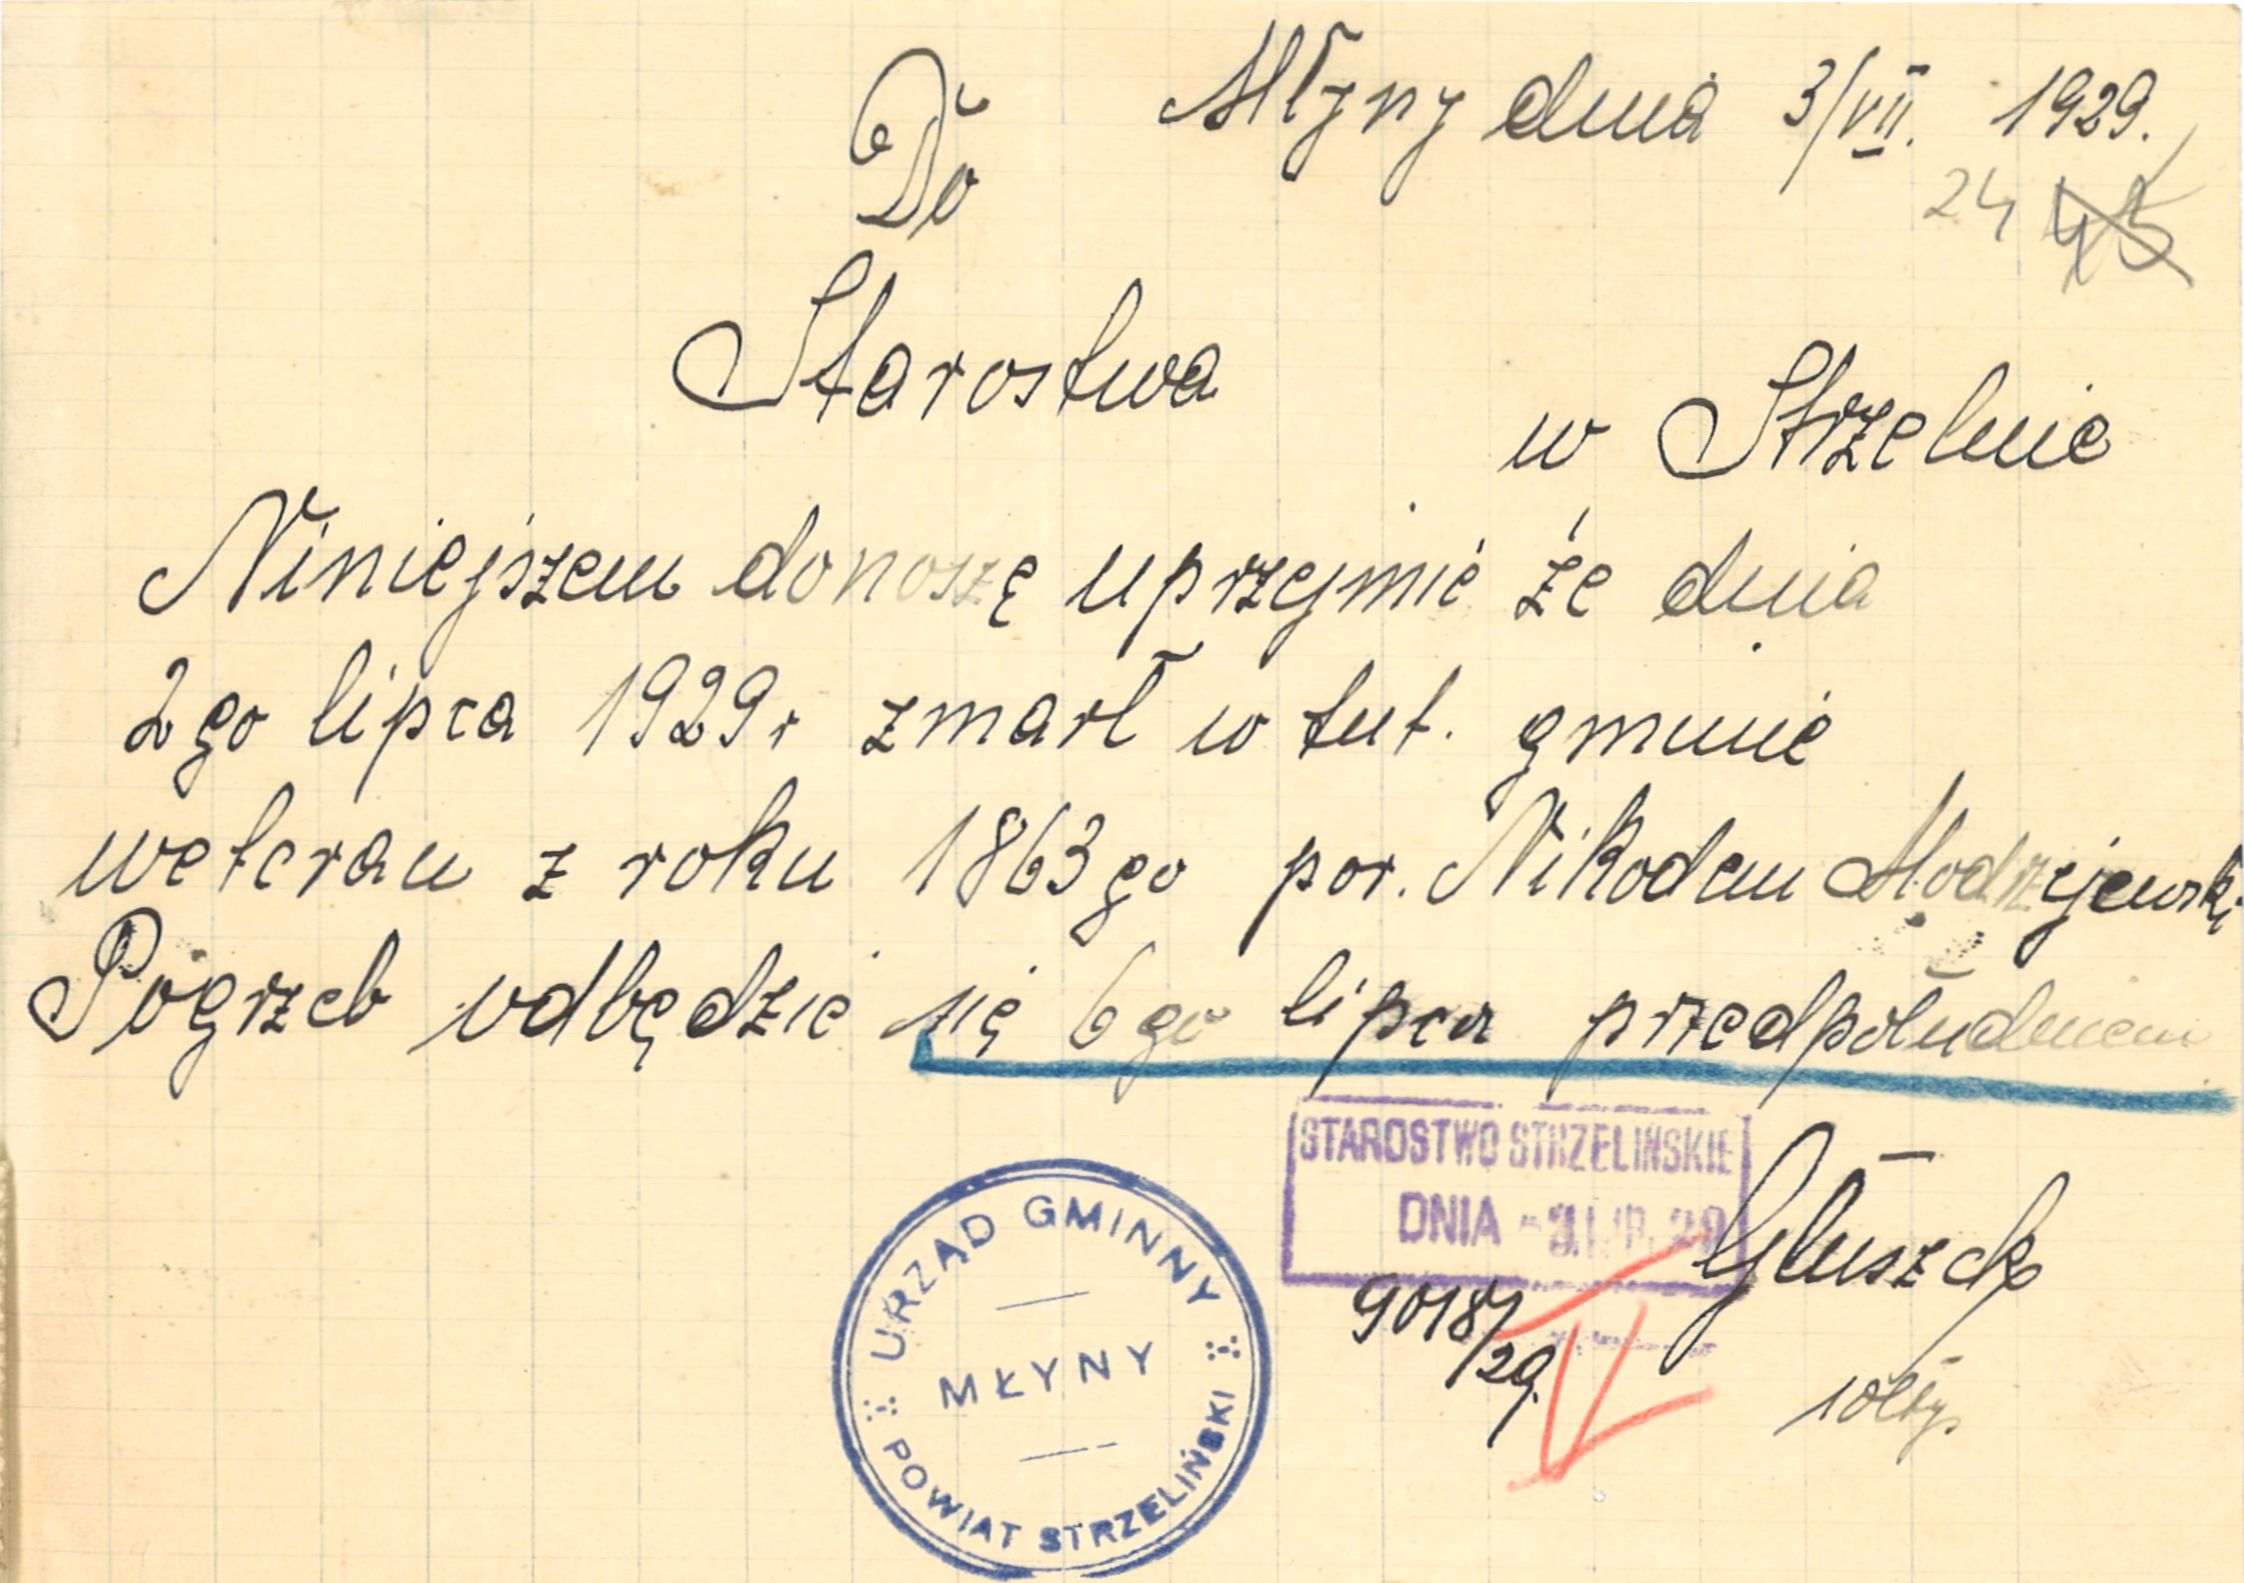 Młyny dnia 3/VII. 1929.
24 45
Do
Starostwa
w Strzelnie
Niniejszem donoszę uprzejmie że dnia
2go lipca 1929r zmarł w tut. gminie
weteran z roku 1863go por. Nikodem Modrzejewski
Pogrzeb odbędzie się 6go lipca przedpołudniem
STAROSTWO STRZELIŃSKIE
DNIA -3.LIP. 29
Głuszek
9018/29.
sołtys
URZĄD GMINNY
MŁYNY
POWIAT STRZELIŃSKI